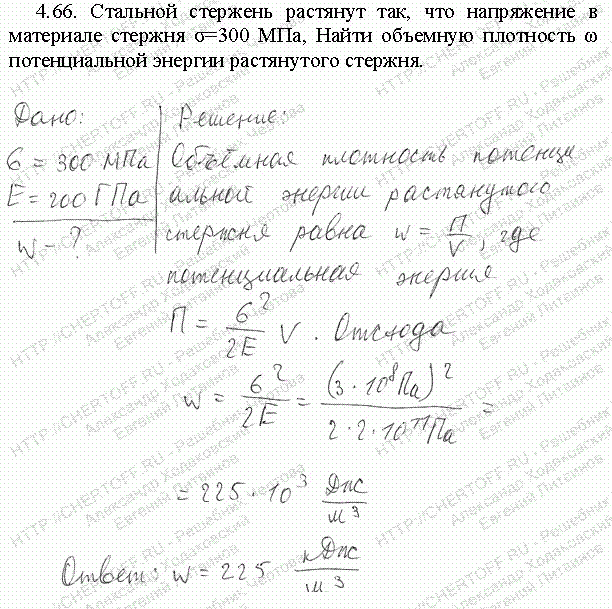 4.66. Стальной стержень растянут так, что напряжение в
материале стержня σ=300 МПа, Найти объемную плотность ω
потенциальной энергии растянутого стержня.
Дано:
σ = 300 МПа
E = 200 ГПа
w - ?
Решение:
Объёмная плотность потенци
альной энергии растянутого
стержня равна w = П/V, где
потенциальная энергия
П = σ²/2E V. Отсюда
w = σ²/2E = (3·10⁸Па)²/2·2·10¹¹Па =
= 225·10³ Дж/м³
Ответ: w = 225 кДж/м³
HTTP://CHERTOFF.RU - Решебник Чертова
Александр Ходаковский
Евгений Литвинов